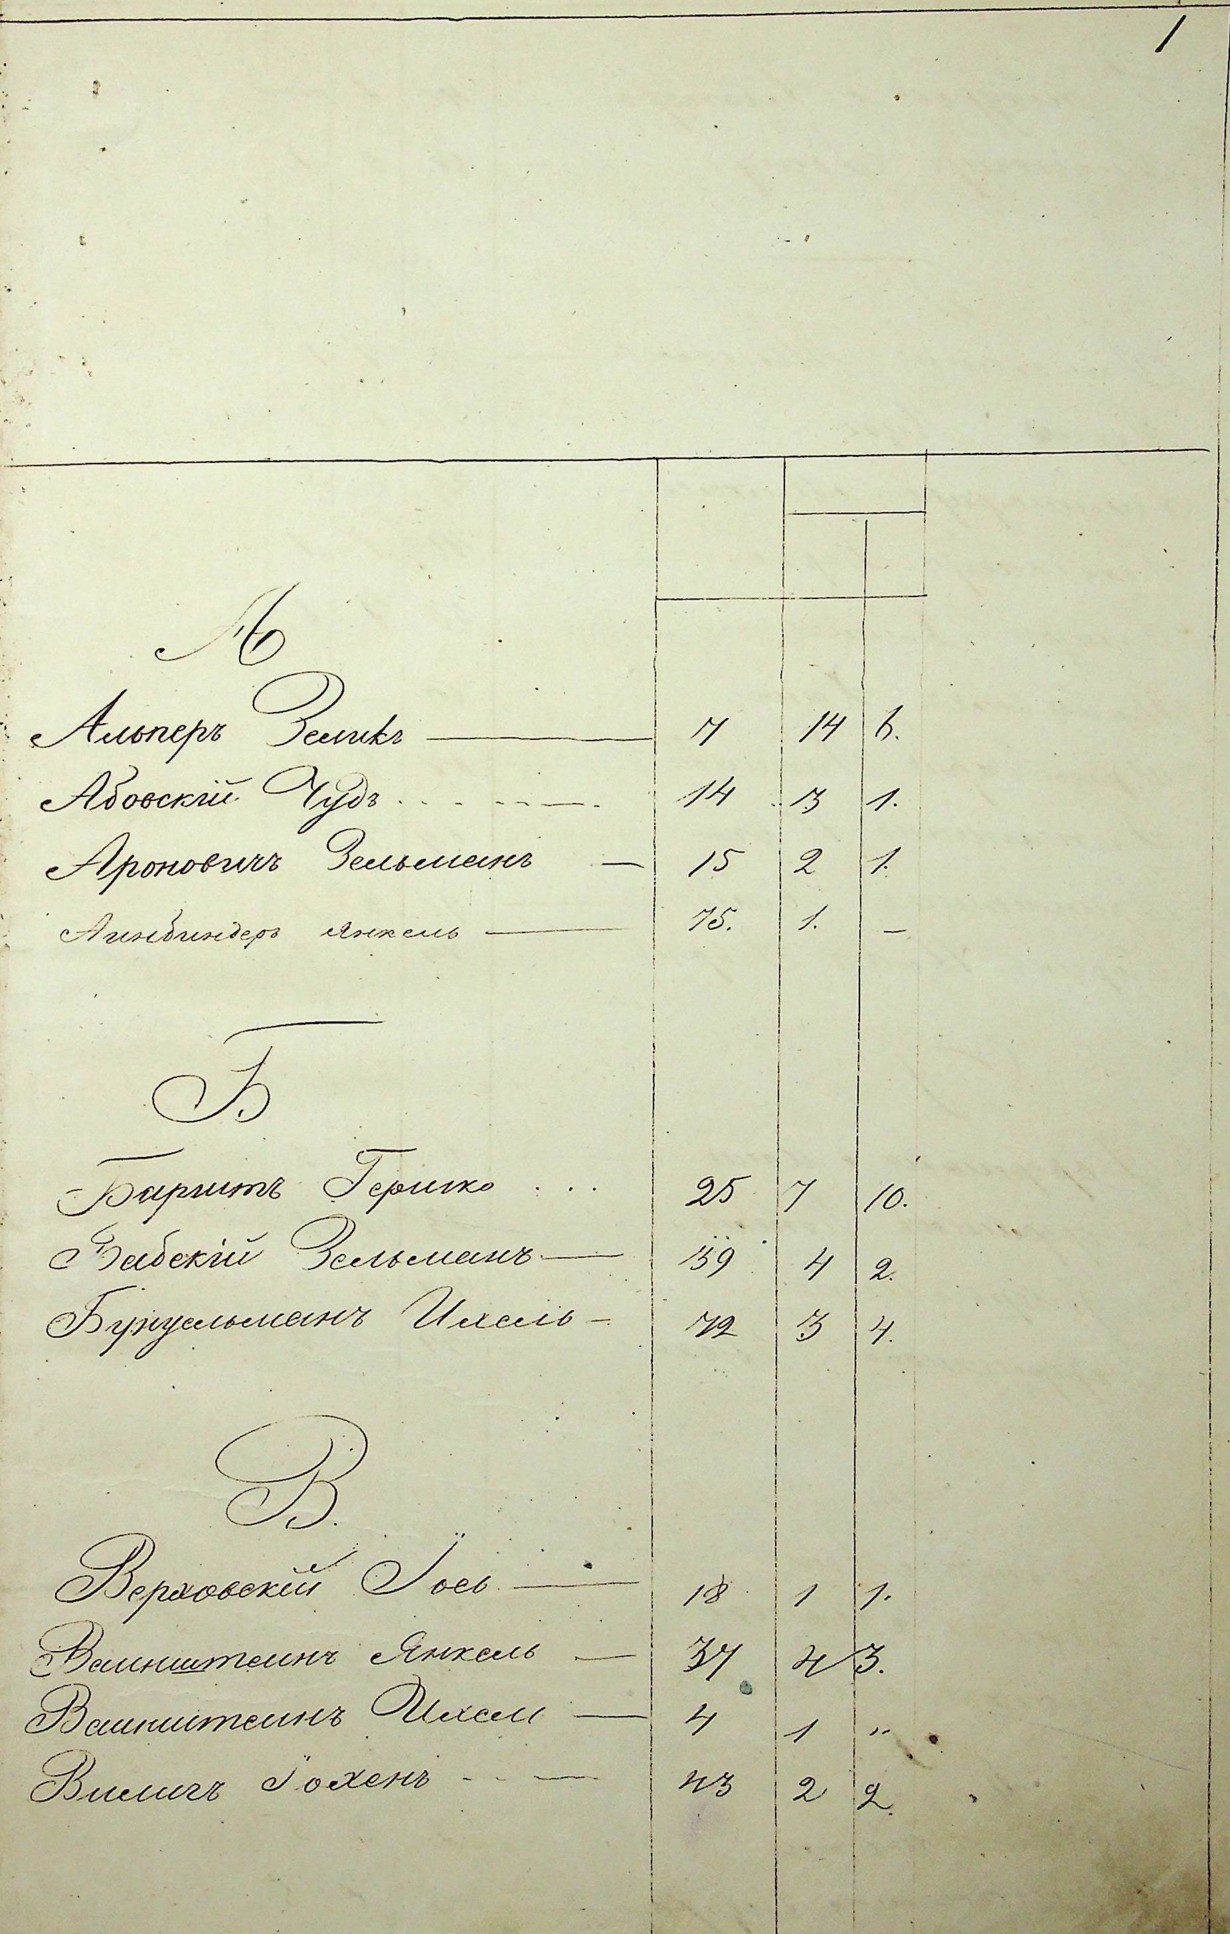 1
А
Альперъ Зеликъ 7 14 6.
Абовскій Чудъ 14 3 1.
Ароновичъ Зельманъ 15 2 1.
Аинбиндеръ Янкель 75. 1. —
Б
Баритъ Гершко 25 7 10.
Бабскій Зельманъ 39 4 2.
Букусльманъ Ихель 72 3 4.
В.
Верховскій Іось 18 1 1.
Ваинштеинъ Янкель 37 4 3.
Ваинштеинъ Ихел 4 1 "
Вилигъ Іохенъ 43 2 2.